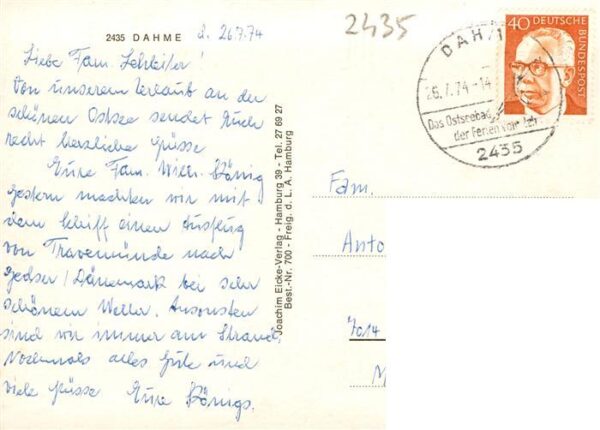 2435 DAHME
d. 26.7.74
Liebe Fam. Schleifer!
Von unserem Urlaub an der
schönen Ostsee sendet Euch
recht herzliche Grüsse
Eure Fam. Willi König
gestern machten wir mit
dem Schiff einen Ausflug
von Travemünde nach
Gedser / Dänemark bei sehr
schönem Wetter. Ansonsten
sind wir immer am Strand,
Nochmals alles Gute und
viele Grüsse Eure Königs.
Joachim Eicke-Verlag - Hamburg 39 - Tel. 27 69 27
Best.-Nr. 700 - Freig. d. L. A. Hamburg
2435
40 DEUTSCHE
BUNDESPOST
DAHM
26.7.74-14
Das Ostseebad
der Ferien
2435
Fam.
Anto
7014
M